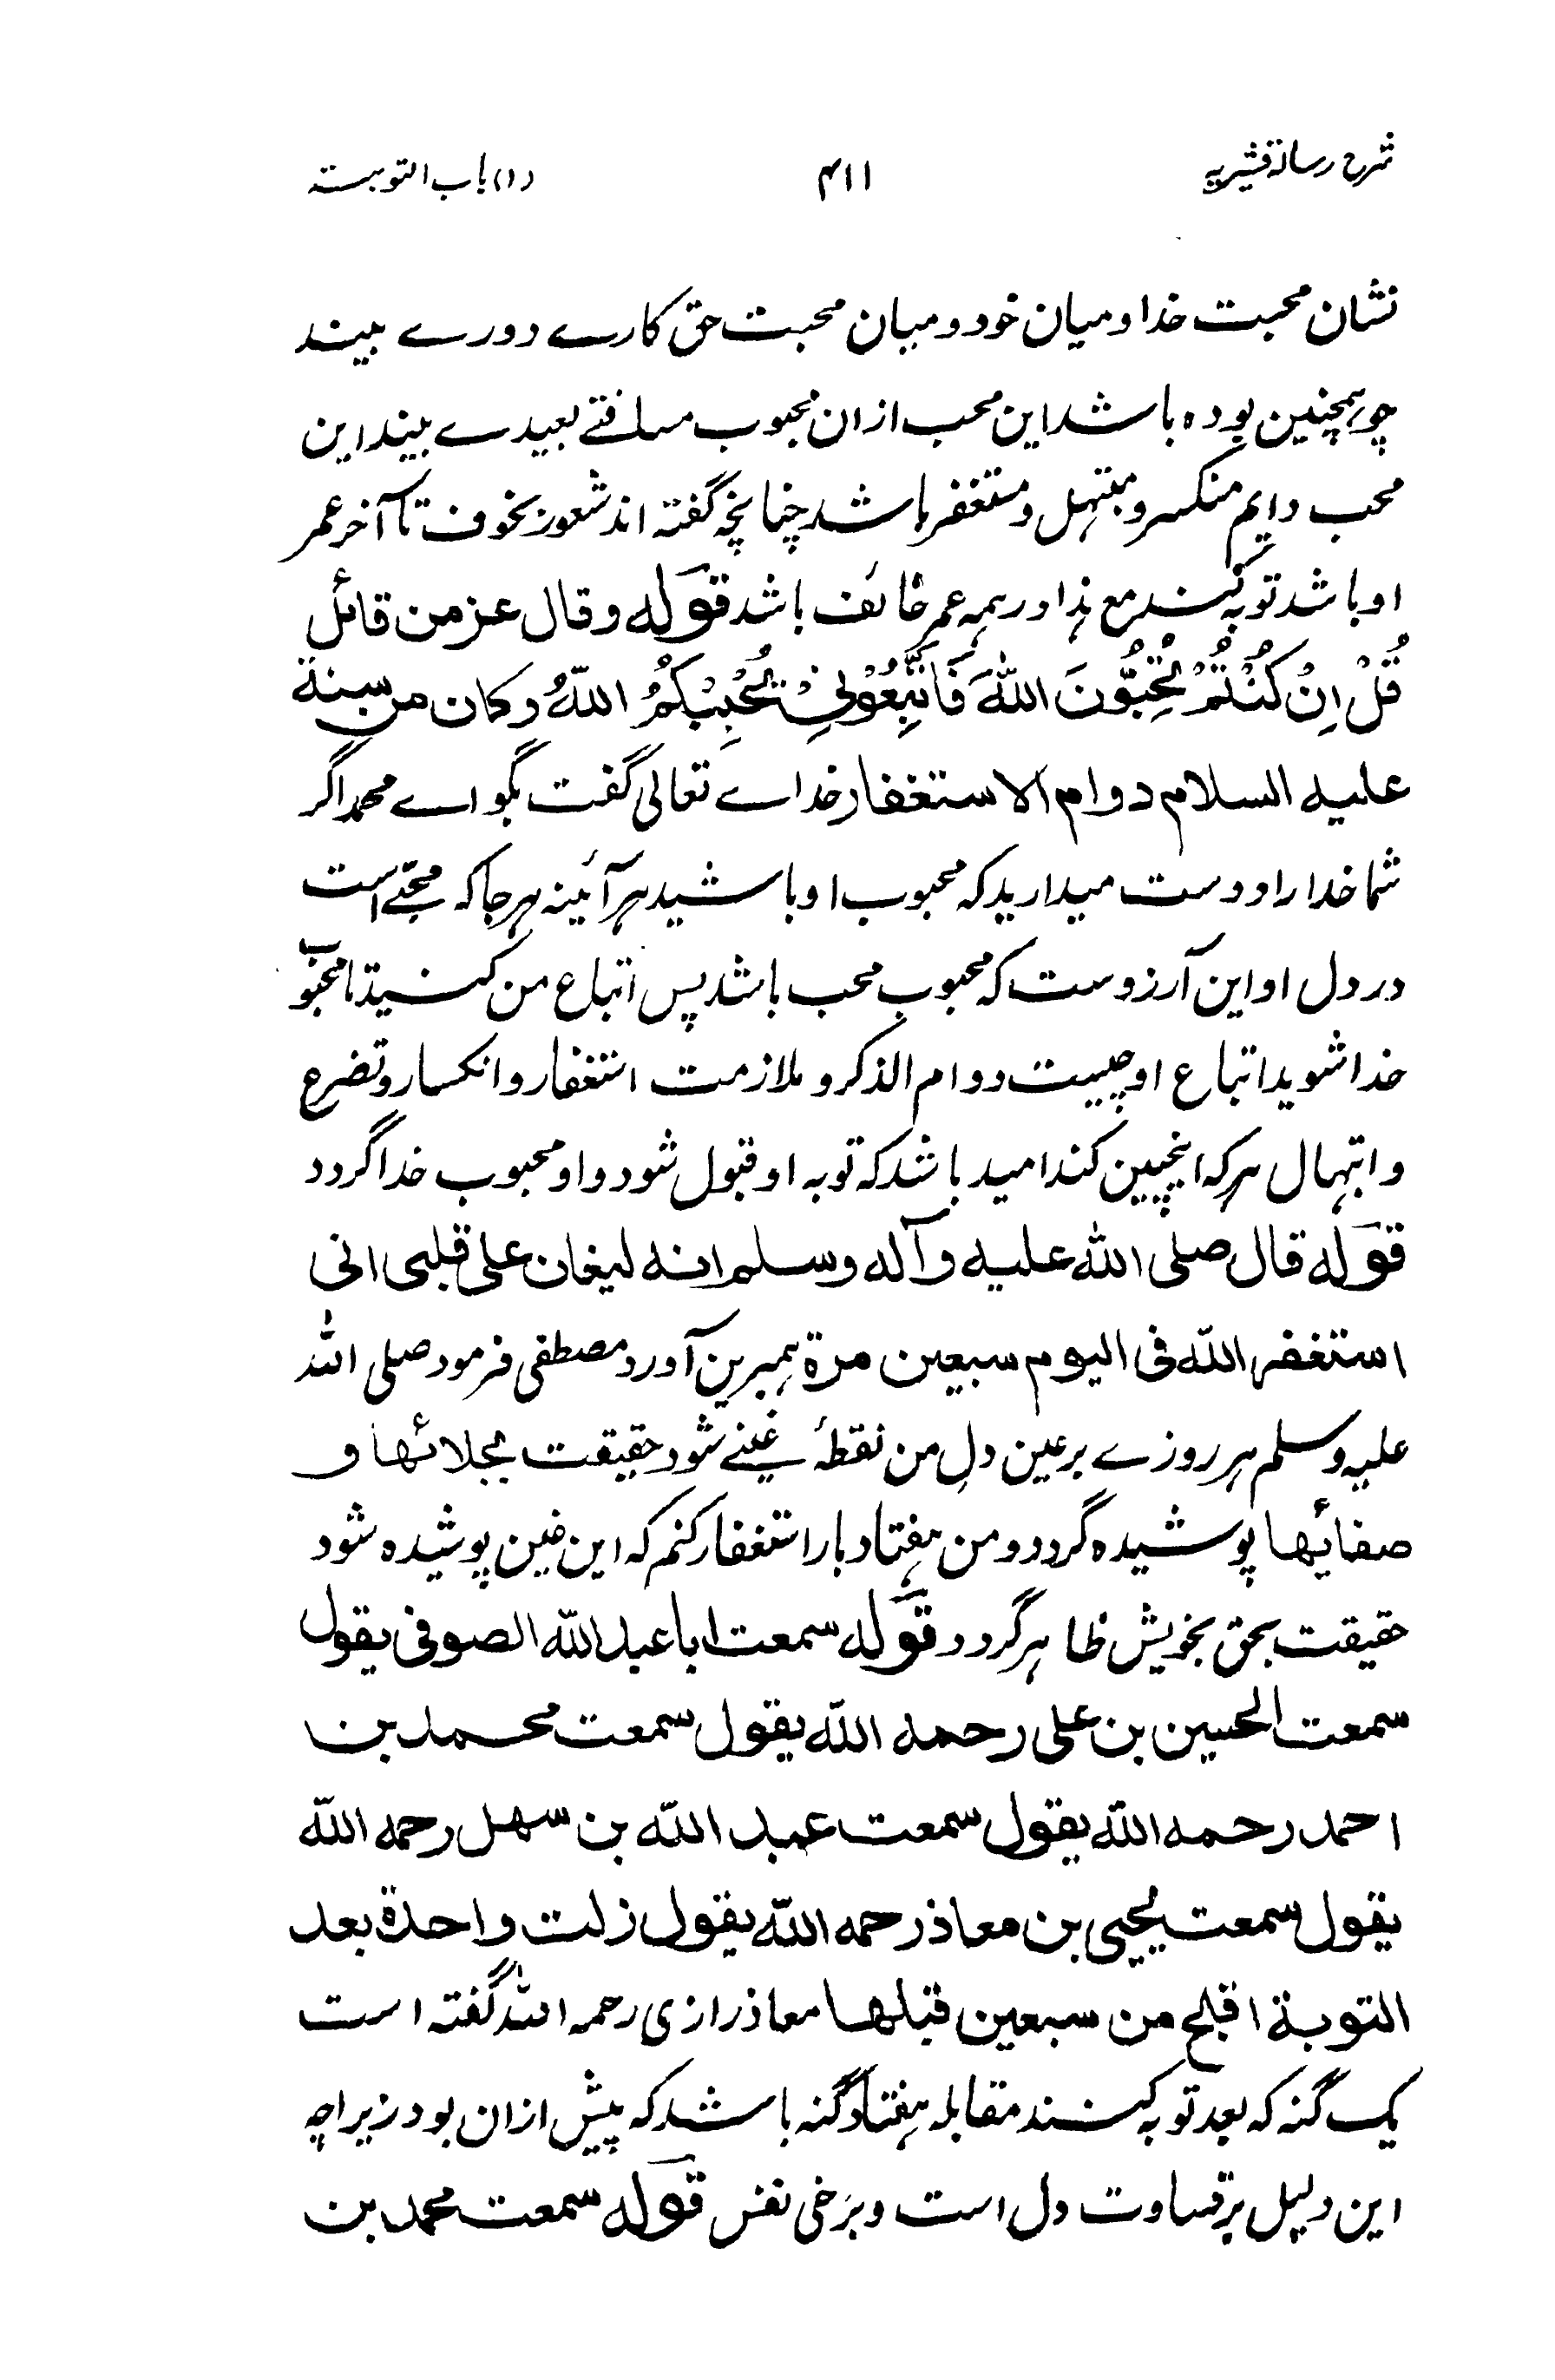 شرح رسالۂ قشیریہ ۴۱۱ (۱) باب التوبتہ
نشان محبت خدا و میان خود و میان محبت حق کارے دورے بیند
چو ہمچنین بودہ باشد این محب ازان محبوب مسافتے بعیدے بیند این
محب دایم منکسر و مبتہل و مستغفر باشد چنانچہ گفتہ اند شعور بخوف تا آخر عمر
او باشد توبہ کند مع ہذا و ہمہ عمر خائف باشد قولہ وقال عز من قائل
قُلْ اِنْ كُنْتُمْ تُحِبُّوْنَ اللّٰهَ فَاتَّبِعُوْنِيْ يُحْبِبْكُمُ اللّٰهُ وكان من سنة
عليه السلام دوام الاستغفار خداے تعالی گفت بگو اے محمد اگر
شما خدا را دوست میدارید کہ محبوب او باشید ہر آئینہ ہر جا کہ محبے است
در دل او این آرزوست کہ محبوبِ محب باشد پس اتباع من کنید تا محبوب
خدا شوید اتباع او چیست دوام الذکر و ملازمت استغفار و انکسار و تضرع
و ابتہال ہر کہ اینچنین کند امید باشد کہ توبہ او قبول شود و او محبوب خدا گردد
قوله قال صلى الله عليه وآله وسلم انه ليغان على قلبی انی
استغفر الله فی اليوم سبعين مرة ہمبرین آورد مصطفی فرمود صلی اللہ
علیہ وسلم ہر روزے بر عین دلِ من نقطۂ غینے شود حقیقت بجلائھا و
صفائھا پوشیدہ گردد و من ہفتاد بار استغفار کنم کہ این غین پوشیدہ شود
حقیقت بحق بخویش ظاہر گردد قوله سمعت ابا عبد الله الصوفی يقول
سمعت الحسين بن على رحمه الله يقول سمعت محمد بن
احمد رحمه الله يقول سمعت عبد الله بن سهل رحمه الله
يقول سمعت يحيى بن معاذ رحمه الله يقول زلت واحدة بعد
التوبة اقبح من سبعين قبلها معاذ رازی رحمہ اللہ گفتہ است
یک گنہ کہ بعد توبہ کند مقابلہ ہفتاد گنہ باشد کہ پیش ازان بود زیراچہ
این دلیل بر قساوت دل است و برخی نفس قوله سمعت محمد بن